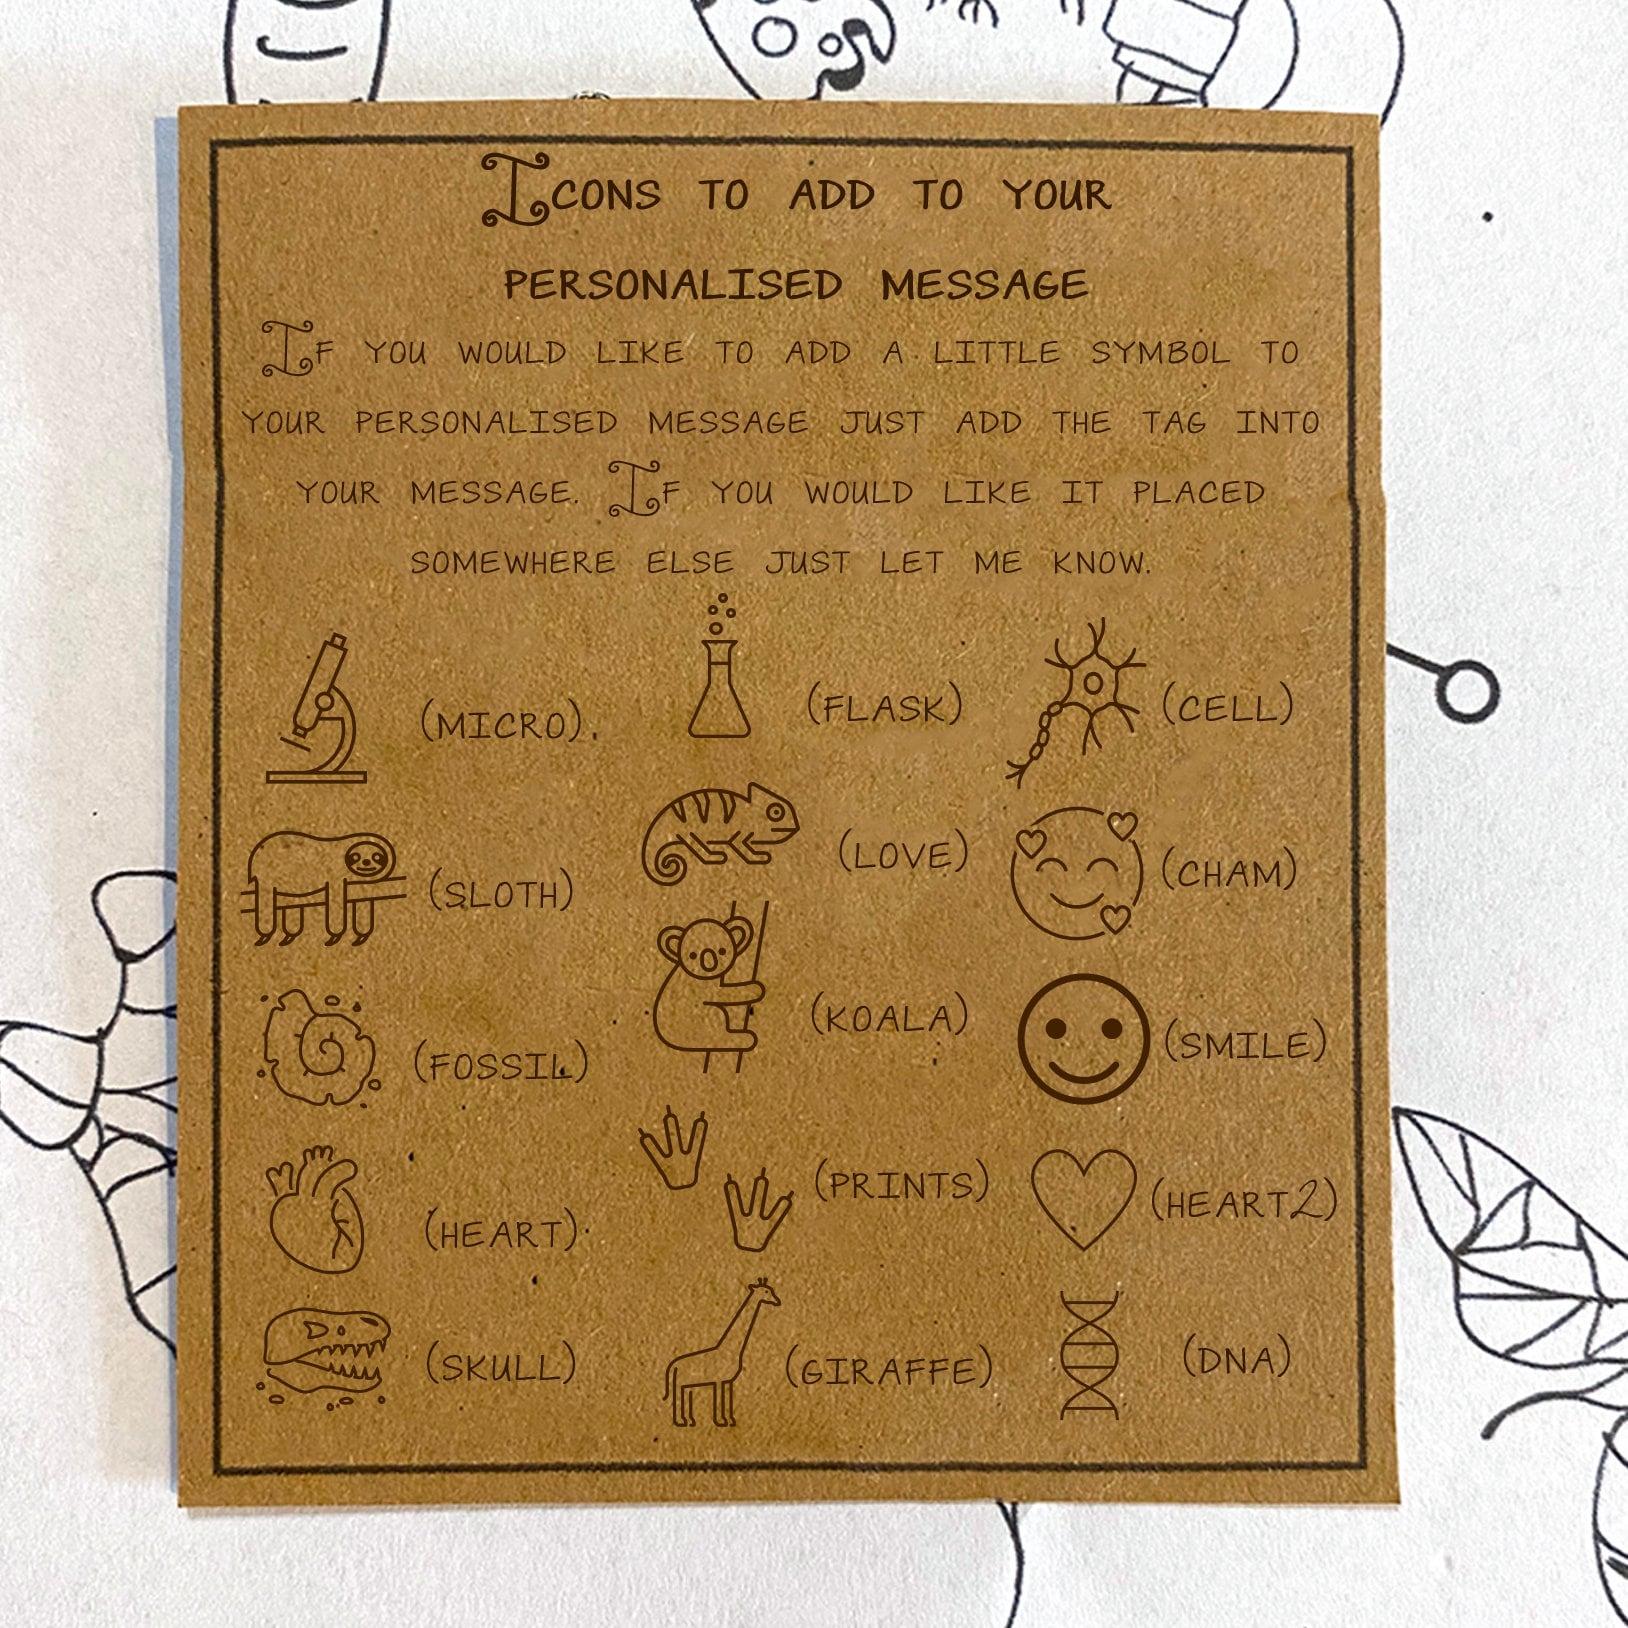 ICONS TO ADD TO YOUR
PERSONALISED MESSAGE
IF YOU WOULD LIKE TO ADD A LITTLE SYMBOL TO
YOUR PERSONALISED MESSAGE JUST ADD THE TAG INTO
YOUR MESSAGE. IF YOU WOULD LIKE IT PLACED
SOMEWHERE ELSE JUST LET ME KNOW.
(MICRO) (FLASK) (CELL)
(SLOTH) (LOVE) (CHAM)
(FOSSIL) (KOALA) (SMILE)
(HEART) (PRINTS) (HEART2)
(SKULL) (GIRAFFE) (DNA)